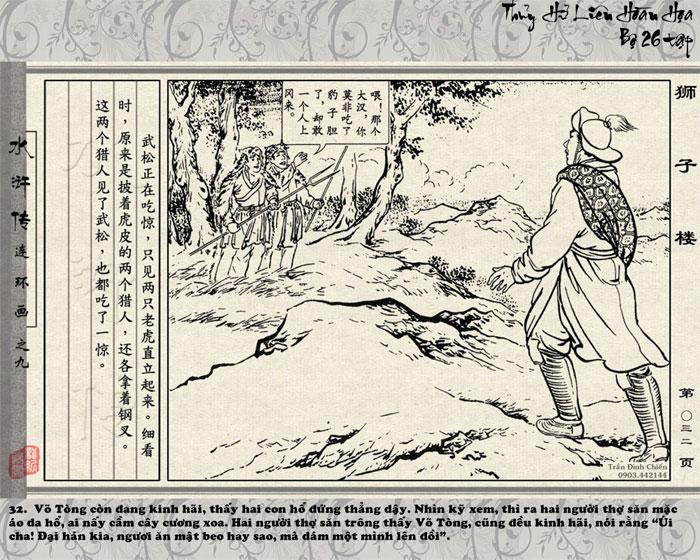 Thủy Hử Liên Hoàn Họa
Bộ 26 tập
水浒传连环画之九
武松正在吃惊，只见两只老虎直立起来。细看
时，原来是披着虎皮的两个猎人，还各拿着钢叉。
这两个猎人见了武松，也都吃了一惊。
喂！那个
大汉，你
莫非吃了
豹子胆
了，却敢
一个人上
冈来。
狮子楼
第〇三二页
Trần Đình Chiến
0903.442144
32. Võ Tòng còn đang kinh hãi, thấy hai con hổ đứng thẳng dậy. Nhìn kỹ xem, thì ra hai người thợ săn mặc
áo da hổ, ai nấy cầm cây cương xoa. Hai người thợ săn trông thấy Võ Tòng, cũng đều kinh hãi, nói rằng “Úi
cha! Đại hán kia, ngươi ăn mật beo hay sao, mà dám một mình lên đồi”.